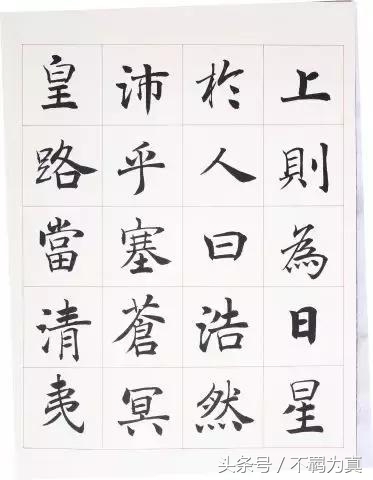 上則為日星
於人曰浩然
沛乎塞蒼冥
皇路當清夷
头条号 / 不羁为真